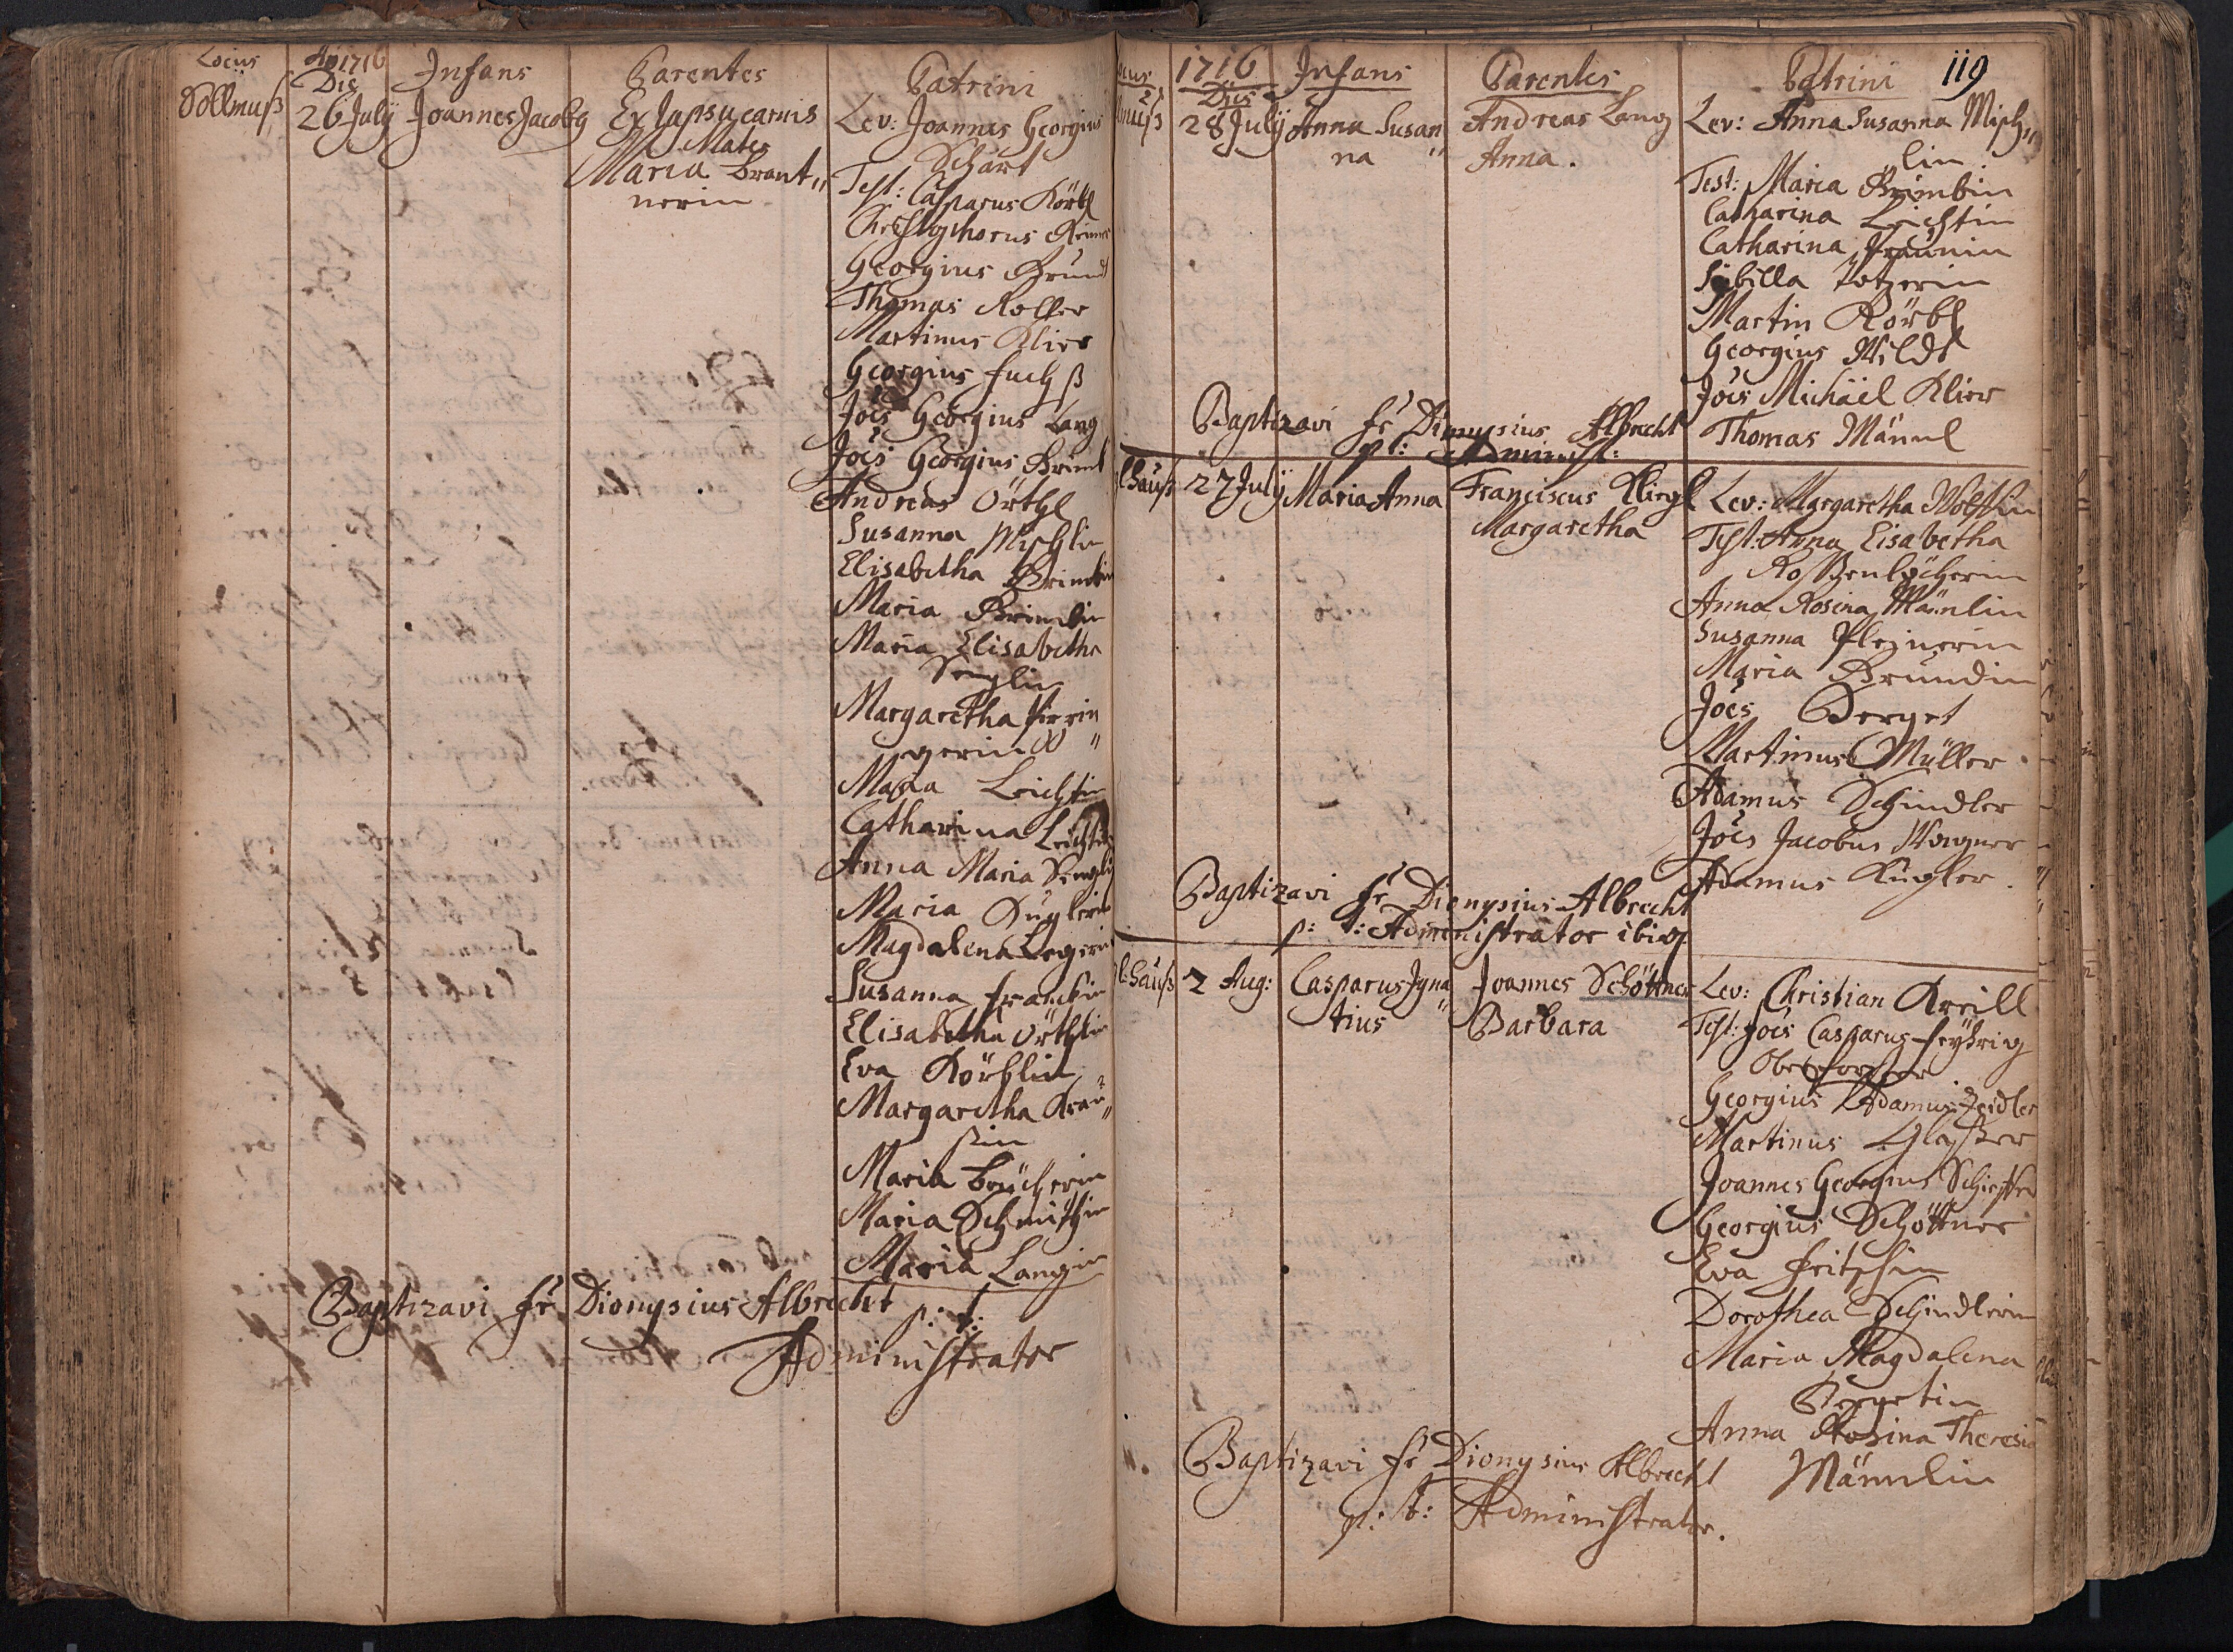 Locus
Ao 1716
Die
Infans
Parentes
Patrini
Sollmuß
26 July
Joannes Jacobg
Ex lapsu carnis
Mater
Maria Brant„
nerin
Lev: Joannes Georgius
Schärt
Test: Casparus Körbl
Christophorus
Georgius Brund
Thomas Kolßer
Martinus Klier
Georgius Fuchß
Joes Georgius Lang
Joes Georgius
Andreas Örthl
Susanna Mischlin
Elisabetha
Maria
Maria Elisabetha
Senglin
Margaretha
gerin
Maria Leichtin
Catharina Leichtin
Anna Maria Senglin
Maria Kuglerin
Magdalena Legerin
Susanna
Elisabetha Örthlin
Eva Körblin
Margaretha
Maria Brücherin
Maria Schmithin
Maria Langin
Baptizavi Fr Dionysius Albrecht
p: t:
Administrator
119
1716
Dies
Infans
Parentes
Patrini
28 July
Anna Susan„
na
Andreas Lang
Anna.
Lev: Anna Susanna Misch„
lin
Test: Maria
Catharina Leichtin
Catharina Fraunin
Sibilla
Martin Körbl
Georgius Wildt
Joes Michäel Klier
Thomas Männl
Baptizavi fr Dionysius Albrecht
p: t: Administ:
lhauß
27 July
Maria Anna
Franciscus Kliegl
Margaretha
Lev: Margaretha Wolffin
Test: Anna Eisabetha
Roßenlöcherin
Anna Rosina Mänlin
Susanna Pleinerin
Maria Brundin
Joes Berget
Martinus Müller
Adamus Schindler
Joes Jacobus Wagner
Adamus Kugler.
Baptizavi fr Dionysius Albrecht
p: t: Administrator ibid
lhauß
2 Aug:
Casparus Igna„
tius
Joannes Schöttner
Barbara
Lev: Christian Krill
Test: Joes Casparus Feyhrig
Oberforster
Georgius Adamus Zeidler
Martinus Glaßer
Joannes Georgius
Georgius Schöttner
Eva Fritschin
Dorothea Schindlerin
Maria Magdalena
Bergetin
Anna Rosina Theresia
Männlin
Baptizavi fr Dionysius Albrecht
p: t: Administrator.